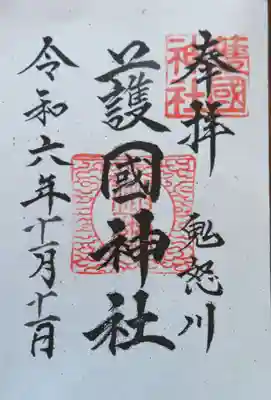 奉拝
鬼怒川
護國
神社
護國神社
令和六年十一月十一日